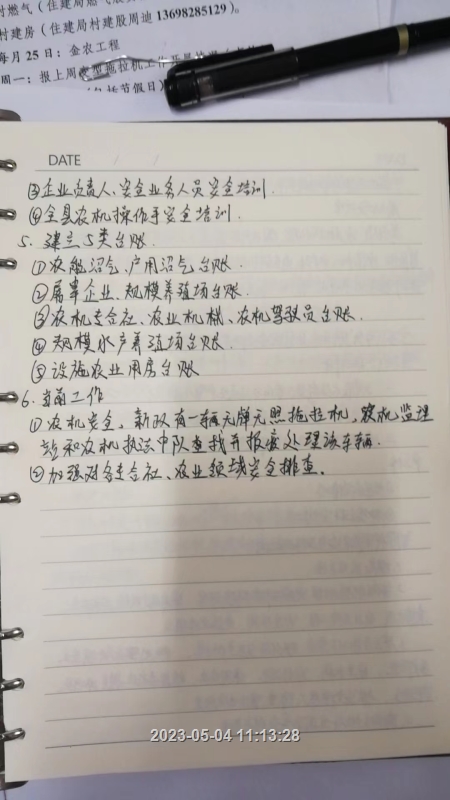 村燃气（住建局燃气股
村建房（住建局村建股周迪 13698285129）。
每月 25 日：金农工程
周一：报上周
（包括节假日）
DATE / /
③企业负责人、安全业务人员安全培训.
④全县农机操作手安全培训.
5. 建立5类台账.
①农舰沼气、户用沼气台账.
②屠宰企业、规模养殖场台账.
③农机专合社、农业机械、农机驾驶员台账.
④规模水产养殖场台账.
⑤设施农业用房台账
6. 当前工作
①农机安全，新政有一辆无牌无照拖拉机，农机监理
站和农机执法中队查找并报废处理该车辆.
②加强对各专合社、农业领域安全排查.
2023-05-04 11:13:28